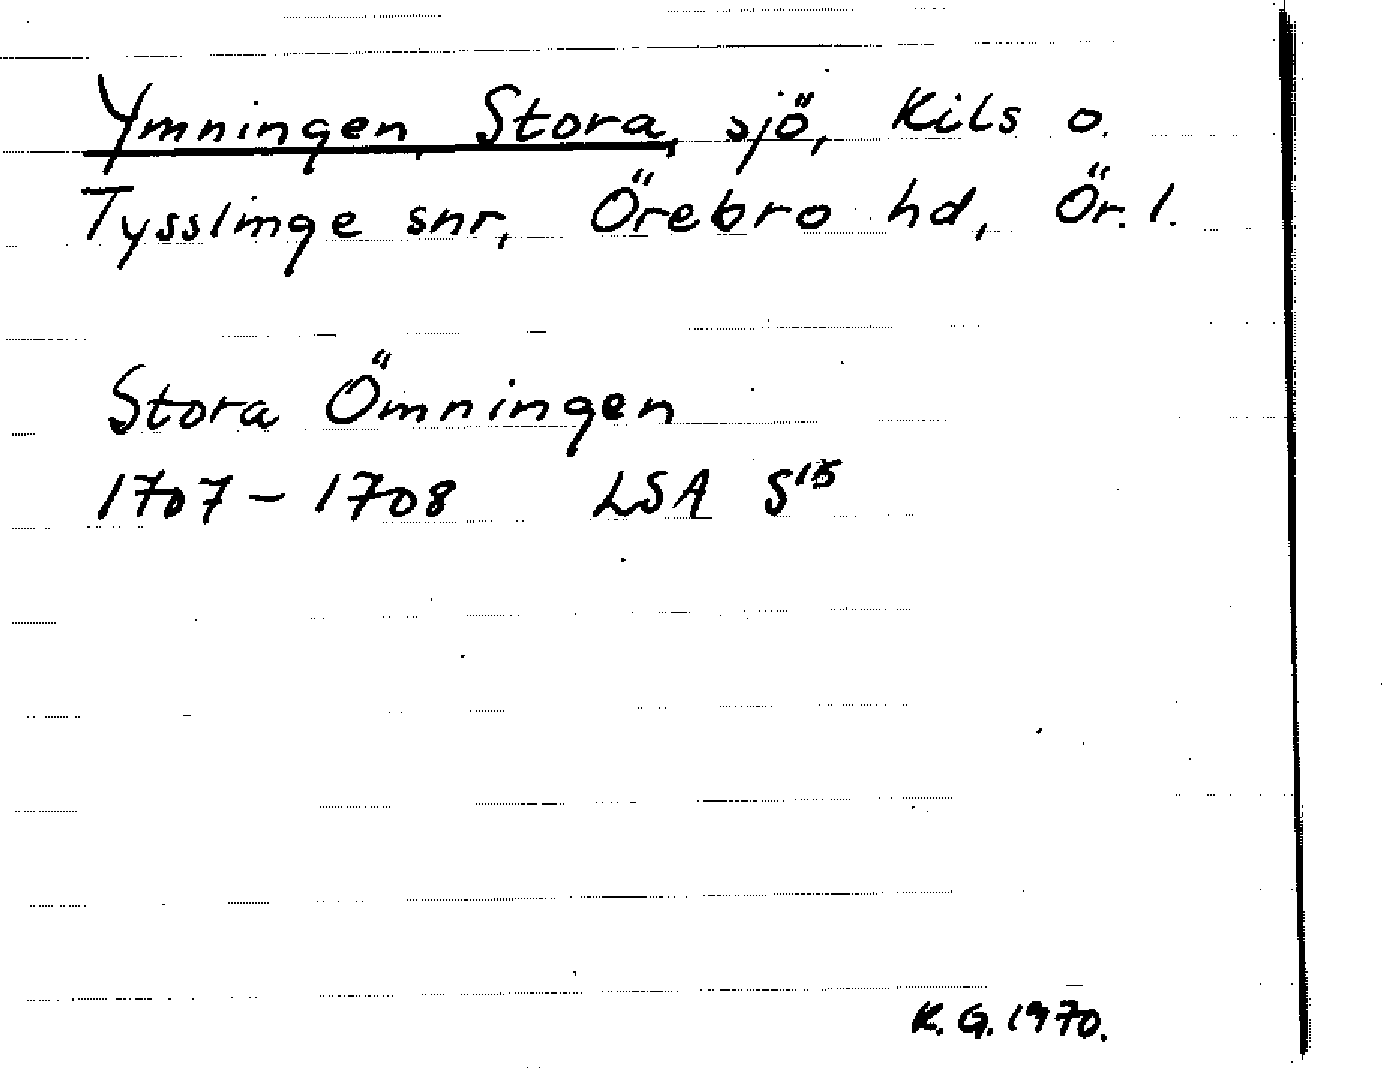 Ymningen, Stora, sjö, Kils o.
Tysslinge snr, Örebro hd, Ör. l.
Stora Ömningen
1707-1708 LSA S15
K. G. 1970.